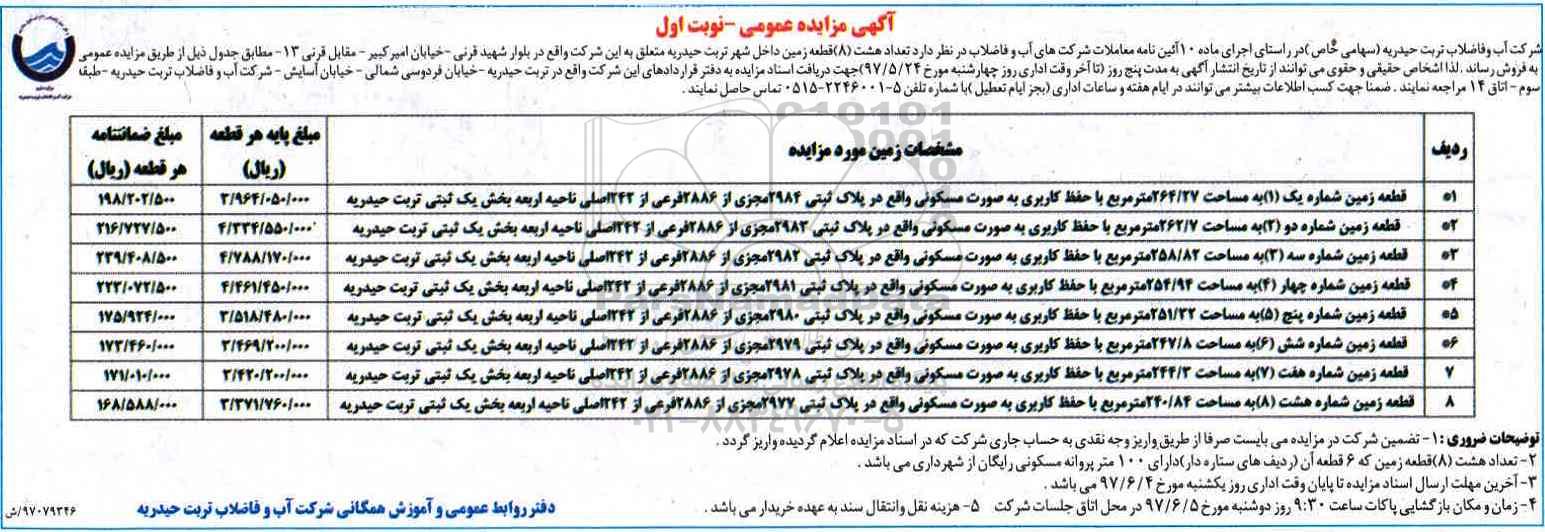 آگهی مزایده عمومی -نوبت اول
شرکت آب وفاضلاب تربت حیدریه (سهامی خاص )در راستای اجرای ماده ۱۰آئین نامه معاملات شرکت های آب و فاضلاب در نظر دارد تعداد هشت (۸)قطعه زمین داخل شهر تربت حیدریه متعلق به این شرکت واقع در بلوار شهید قرنی -خیابان امیرکبیر - مقابل قرنی ۱۳- مطابق جدول ذیل از طریق مزایده عمومی
به فروش رساند .لذا اشخاص حقیقی و حقوی می توانند از تاریخ انتشار آگهی به مدت پنج روز (تا آخر وقت اداری روز چهارشنبه مورخ ۹۷/۵/۲۴)جهت دریافت اسناد مزایده به دفتر قراردادهای این شرکت واقع در تربت حیدریه -خیابان فردوسی شمالی - خیابان آسایش - شرکت آب و فاضلاب تربت حیدریه -طبقه
سوم - اتاق ۱۴ مراجعه نمایند . ضمنا جهت کسب اطلاعات بیشتر می توانند در ایام هفته و ساعات اداری (بجز ایام تعطیل )با شماره تلفن ۵-۲۲۴۶۰۰۱-۰۵۱۵ تماس حاصل نمایند .
ردیف مشخصات زمین مورد مزایده مبلغ پایه هر قطعه (ریال) مبلغ ضمانتنامه هر قطعه (ریال)
۱* قطعه زمین شماره یک (۱)به مساحت ۲۶۴/۲۷مترمربع با حفظ کاربری به صورت مسکونی واقع در پلاک ثبتی ۲۹۸۴مجزی از ۲۸۸۶فرعی از ۲۴۳اصلی ناحیه اربعه بخش یک ثبتی تربت حیدریه ۳/۹۶۴/۰۵۰/۰۰۰ ۱۹۸/۲۰۲/۵۰۰
۲* قطعه زمین شماره دو (۲)به مساحت ۲۶۲/۷مترمربع با حفظ کاربری به صورت مسکونی واقع در پلاک ثبتی ۲۹۸۳مجزی از ۲۸۸۶فرعی از ۲۴۲اصلی ناحیه اربعه بخش یک ثبتی تربت حیدریه ۴/۳۳۴/۵۵۰/۰۰۰ ۲۱۶/۷۲۷/۵۰۰
۳* قطعه زمین شماره سه (۳)به مساحت ۲۵۸/۸۲مترمربع با حفظ کاربری به صورت مسکونی واقع در پلاک ثبتی ۲۹۸۲مجزی از ۲۸۸۶فرعی از ۲۴۲اصلی ناحیه اربعه بخش یک ثبتی تربت حیدریه ۴/۷۸۸/۱۷۰/۰۰۰ ۲۳۹/۴۰۸/۵۰۰
۴* قطعه زمین شماره چهار (۴)به مساحت ۲۵۴/۹۴مترمربع با حفظ کاربری به صورت مسکونی واقع در پلاک ثبتی ۲۹۸۱مجزی از ۲۸۸۶فرعی از ۲۴۲اصلی ناحیه اربعه بخش یک ثبتی تربت حیدریه ۴/۴۶۱/۴۵۰/۰۰۰ ۲۲۳/۰۷۲/۵۰۰
۵* قطعه زمین شماره پنج (۵)به مساحت ۲۵۱/۳۲مترمربع با حفظ کاربری به صورت مسکونی واقع در پلاک ثبتی ۲۹۸۰مجزی از ۲۸۸۶فرعی از ۲۴۲اصلی ناحیه اربعه بخش یک ثبتی تربت حیدریه ۳/۵۱۸/۴۸۰/۰۰۰ ۱۷۵/۹۲۴/۰۰۰
۶* قطعه زمین شماره شش (۶)به مساحت ۲۴۷/۸مترمربع با حفظ کاربری به صورت مسکونی واقع در پلاک ثبتی ۲۹۷۹مجزی از ۲۸۸۶فرعی از ۲۴۲اصلی ناحیه اربعه بخش یک ثبتی تربت حیدریه ۳/۴۶۹/۲۰۰/۰۰۰ ۱۷۳/۴۶۰/۰۰۰
۷ قطعه زمین شماره هفت (۷)به مساحت ۲۴۴/۳مترمربع با حفظ کاربری به صورت مسکونی واقع در پلاک ثبتی ۲۹۷۸مجزی از ۲۸۸۶فرعی از ۲۴۲اصلی ناحیه اربعه بخش یک ثبتی تربت حیدریه ۳/۴۲۰/۲۰۰/۰۰۰ ۱۷۱/۰۱۰/۰۰۰
۸ قطعه زمین شماره هشت (۸)به مساحت ۲۴۰/۸۴مترمربع با حفظ کاربری به صورت مسکونی واقع در پلاک ثبتی ۲۹۷۷مجزی از ۲۸۸۶فرعی از ۲۴۲اصلی ناحیه اربعه بخش یک ثبتی تربت حیدریه ۳/۳۷۱/۷۶۰/۰۰۰ ۱۶۸/۵۸۸/۰۰۰
ParsNamadData
۰۲۱-۸۸۳۴۹۶۷۰-۵
توضیحات ضروری :۱- تضمین شرکت در مزایده می بایست صرفا از طریق واریز وجه نقدی به حساب جاری شرکت که در اسناد مزایده اعلام گردیده واریز گردد .
۲- تعداد هشت (۸)قطعه زمین که ۶ قطعه آن (ردیف های ستاره دار)دارای ۱۰۰ متر پروانه مسکونی رایگان از شهرداری می باشد .
۳- آخرین مهلت ارسال اسناد مزایده تا پایان وقت اداری روز یکشنبه مورخ ۹۷/۶/۴ می باشد .
۴- زمان و مکان بازگشایی پاکات ساعت ۹:۳۰ روز دوشنبه مورخ ۹۷/۶/۵ در محل اتاق جلسات شرکت ۵- هزینه نقل وانتقال سند به عهده خریدار می باشد .
دفتر روابط عمومی و آموزش همگانی شرکت آب و فاضلاب تربت حیدریه
۹۷۰۷۹۳۴۶/ش